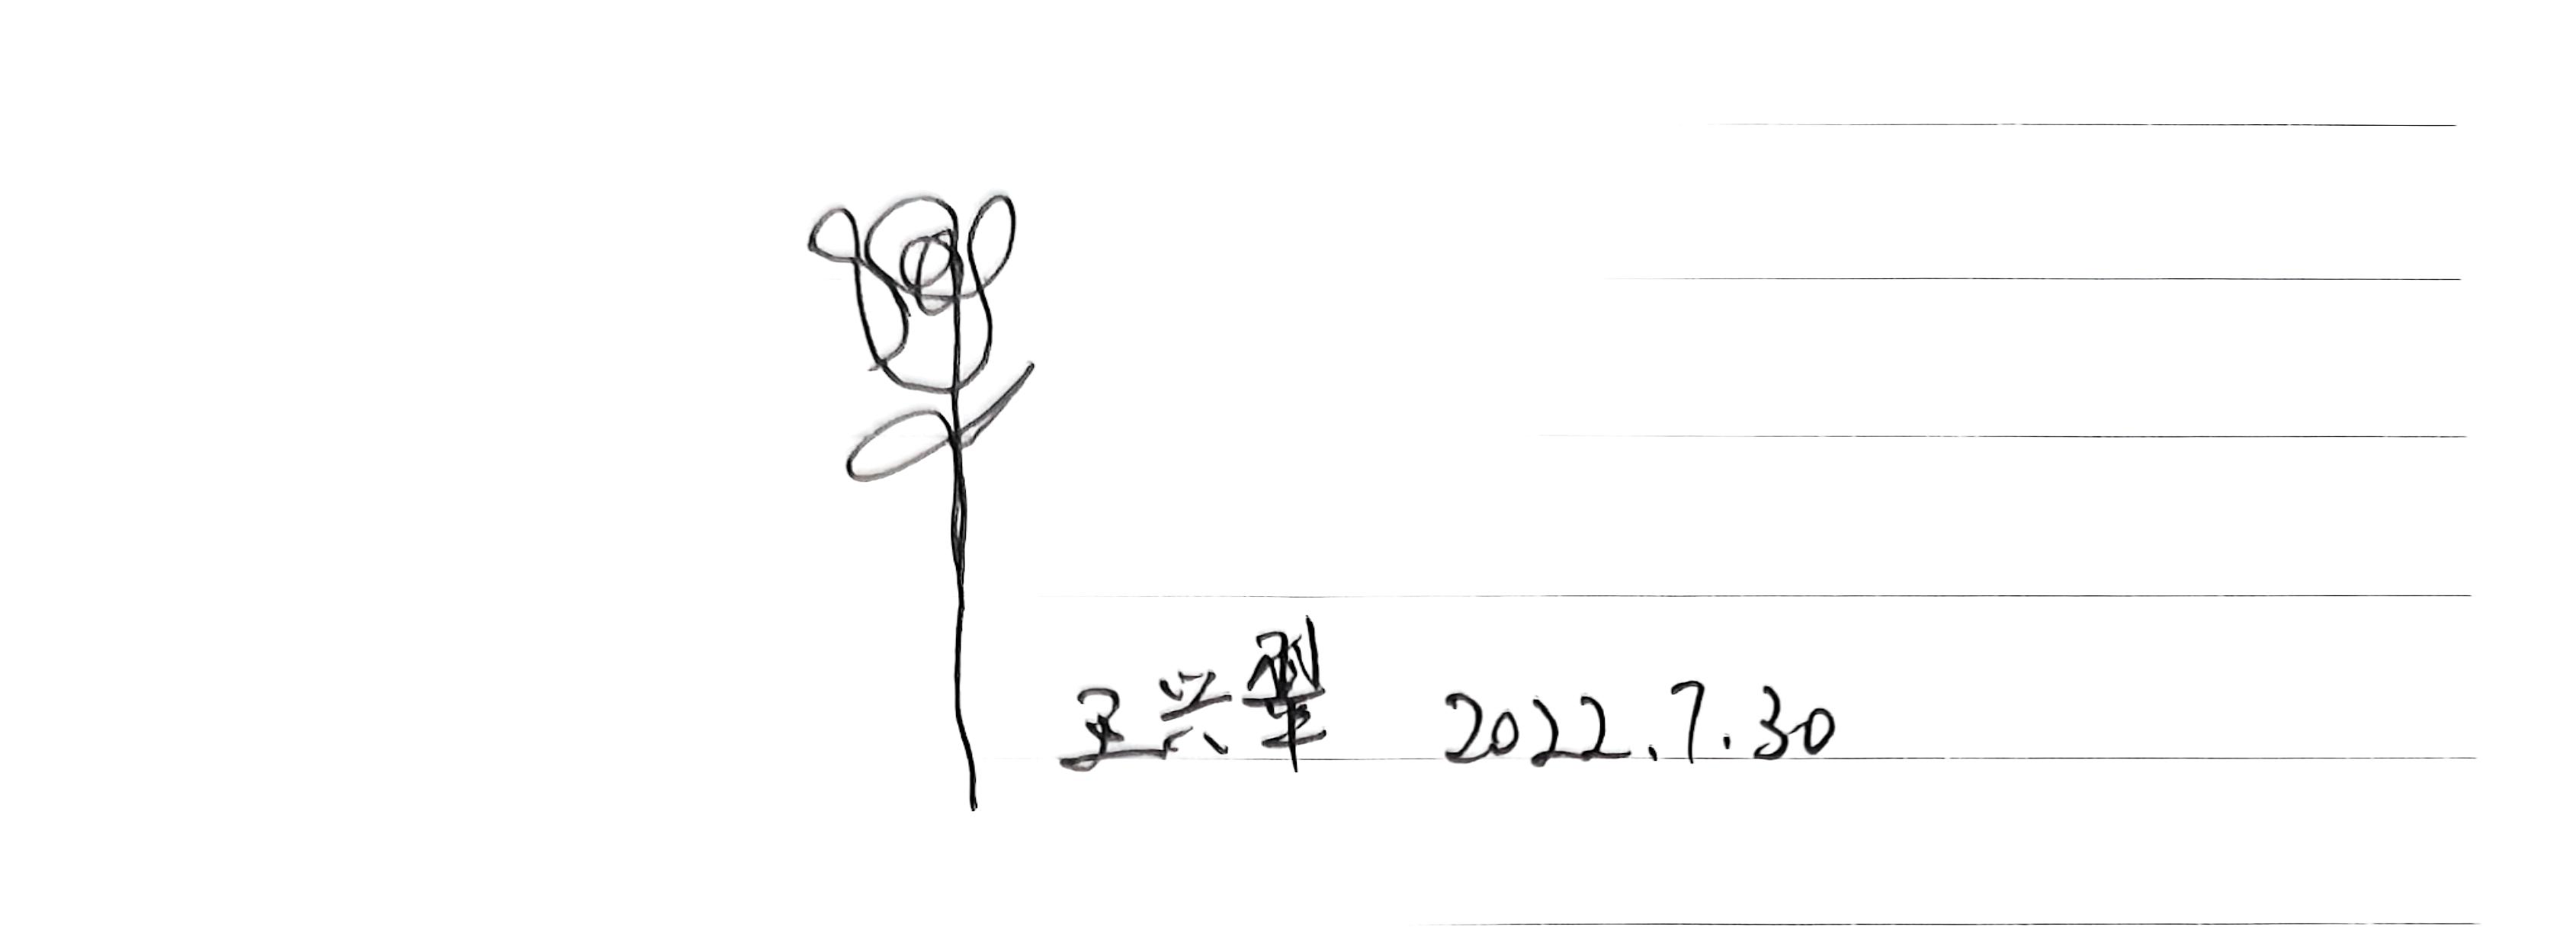 王兴犁 2022.7.30